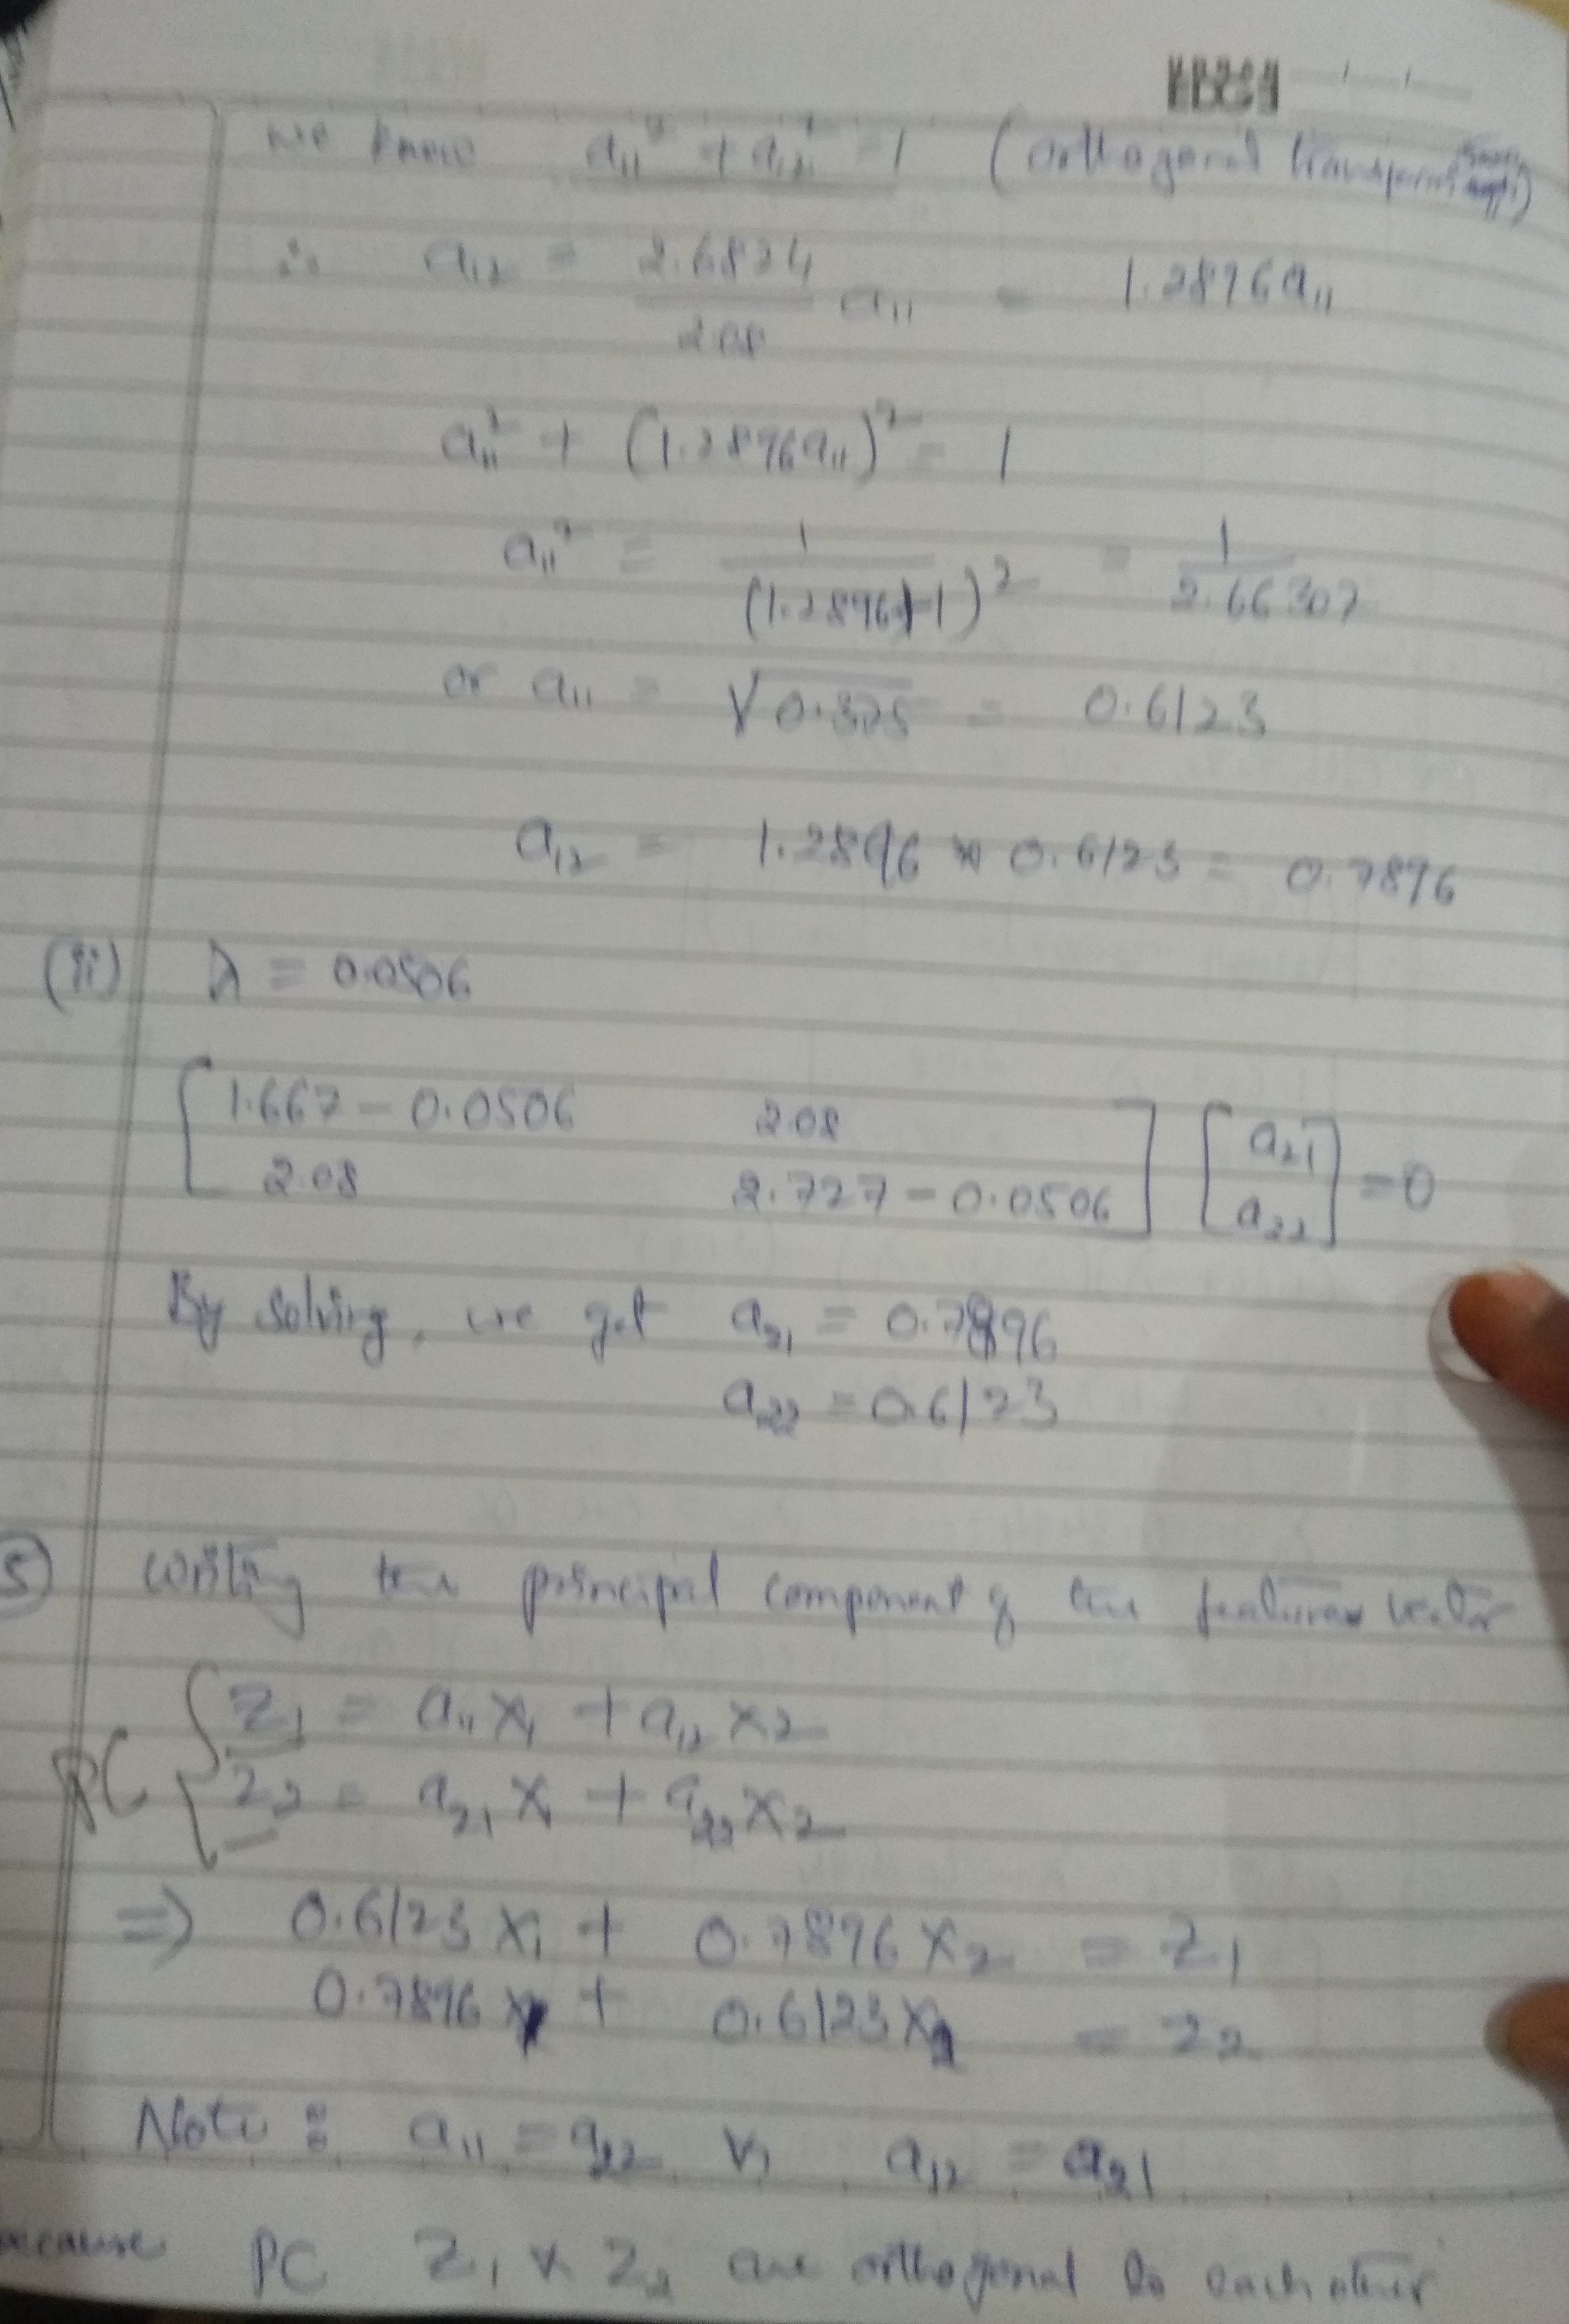 we know a₁₁² + a₁₂² = 1 (orthogonal
∴ a₁₂ = 2.6824/2.08 a₁₁ = 1.2896a₁₁
a₁₁² + (1.2896a₁₁)² = 1
a₁₁² = 1/(1.2896+1)² = 1/2.66307
or a₁₁ = √0.375 = 0.6123
a₁₂ = 1.2896 × 0.6123 = 0.7896
(ii) λ = 0.0506
[1.667 - 0.0506 2.08
2.08 2.727 - 0.0506] [a₂₁ a₂₂] = 0
By solving, we get a₂₁ = 0.7896
a₂₂ = 0.6123
5) Writing the principal component of the features vector
PC { Z₁ = a₁₁ x₁ + a₁₂ x₂
Z₂ = a₂₁ x₁ + a₂₂ x₂
⇒ 0.6123 x₁ + 0.7896 x₂ = Z₁
0.7896 x₁ + 0.6123 x₂ = Z₂
Note : a₁₁ = a₂₂ & a₁₂ = a₂₁
because PC Z₁ & Z₂ are orthogonal to each other